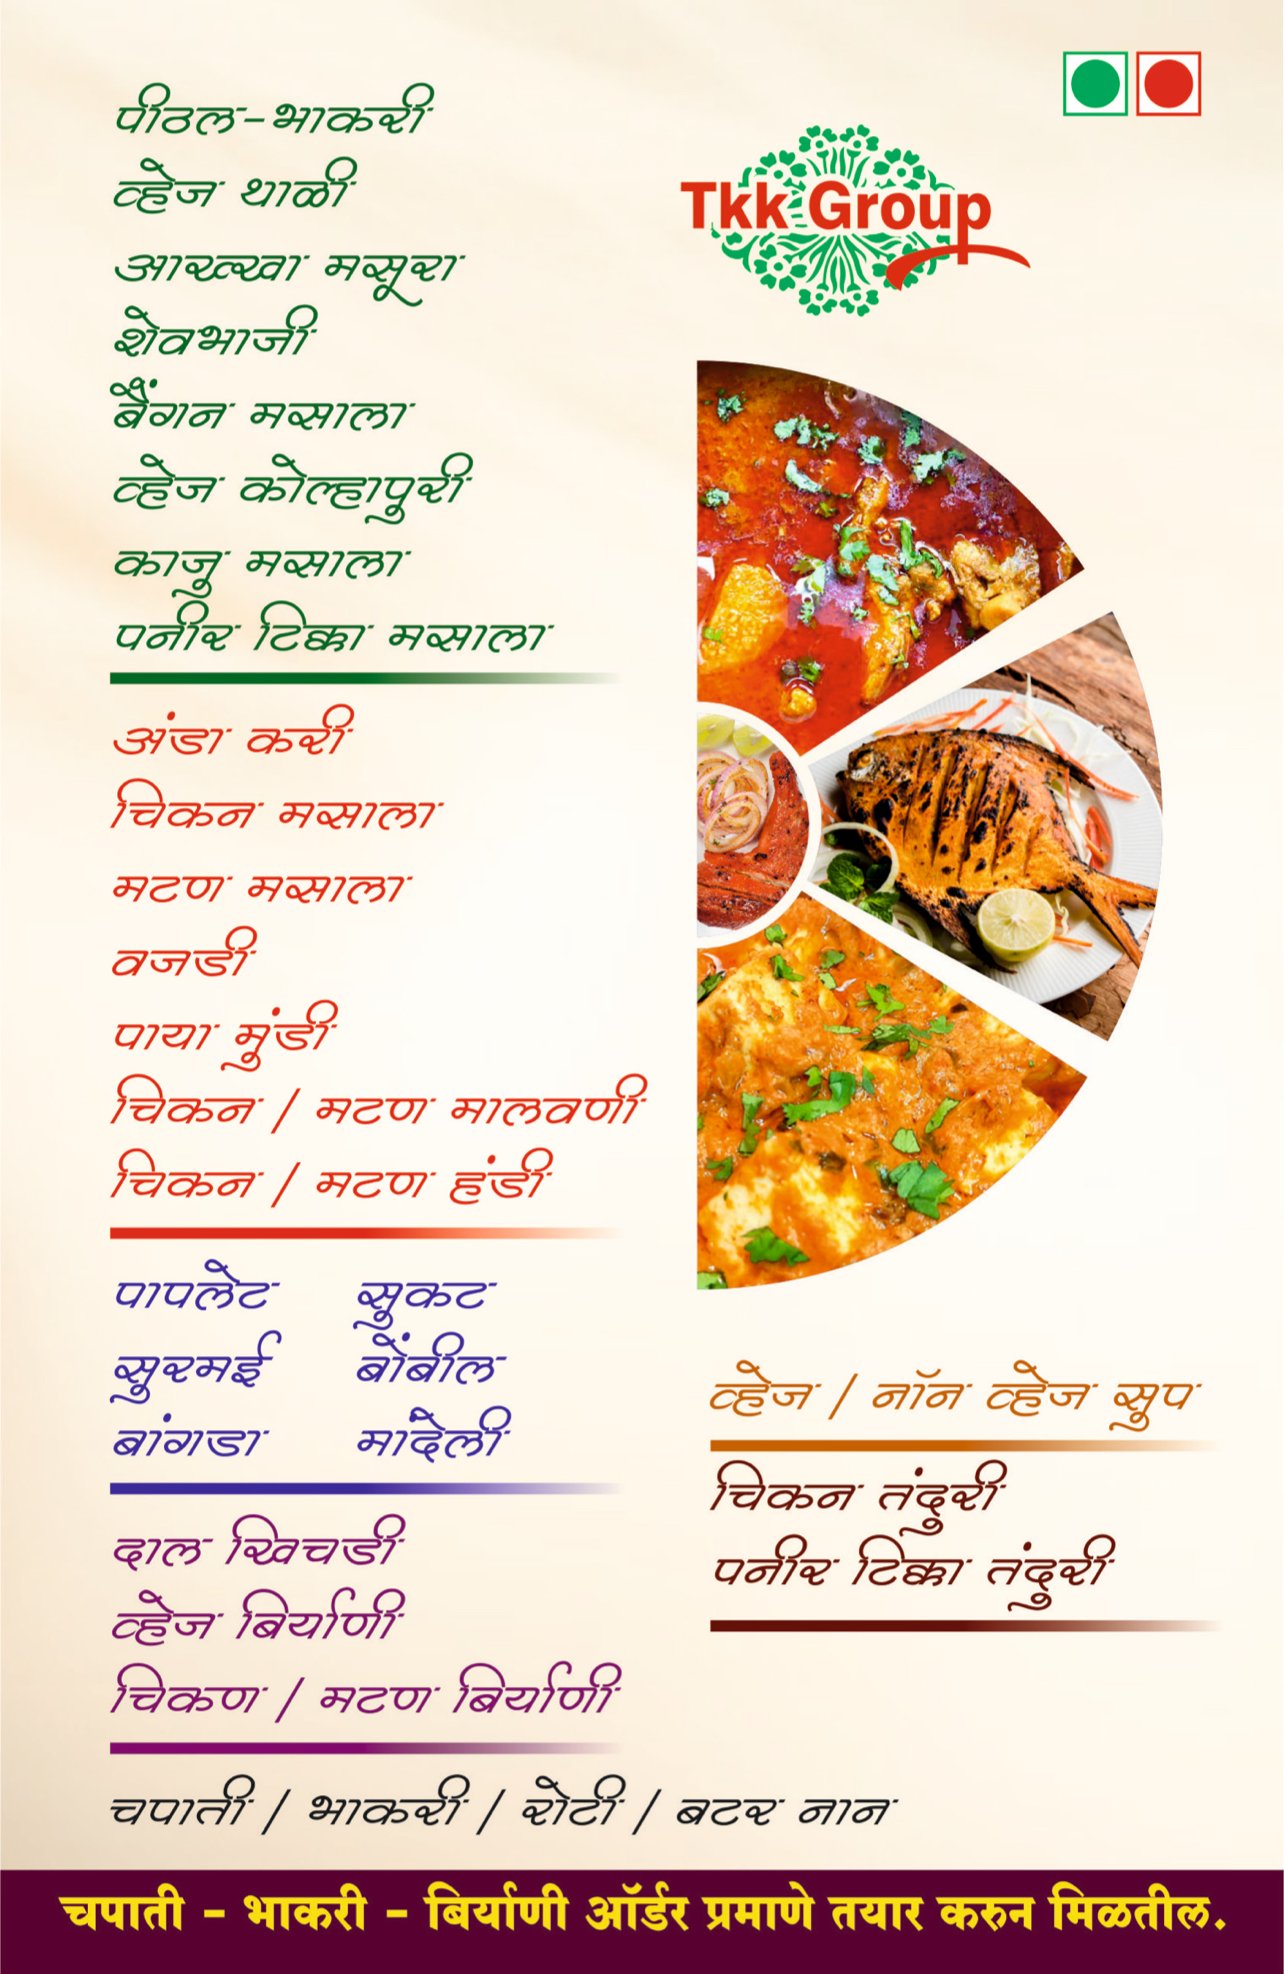 पीठल-भाकरी
व्हेज थाळी
आख्खा मसूरा
शेवभाजी
बैंगन मसाला
व्हेज कोल्हापुरी
काजु मसाला
पनीर टिक्का मसाला
अंडा करी
चिकन मसाला
मटण मसाला
वजडी
पाया मुंडी
चिकन / मटण मालवणी
चिकन / मटण हंडी
पापलेट सुकट
सुरमई बोंबील
बांगडा मांदेली
दाल खिचडी
व्हेज बिर्याणी
चिकण / मटण बिर्याणी
Tkk Group
व्हेज / नॉन व्हेज सुप
चिकन तंदुरी
पनीर टिक्का तंदुरी
चपाती / भाकरी / रोटी / बटर नान
चपाती - भाकरी - बिर्याणी ऑर्डर प्रमाणे तयार करुन मिळतील.